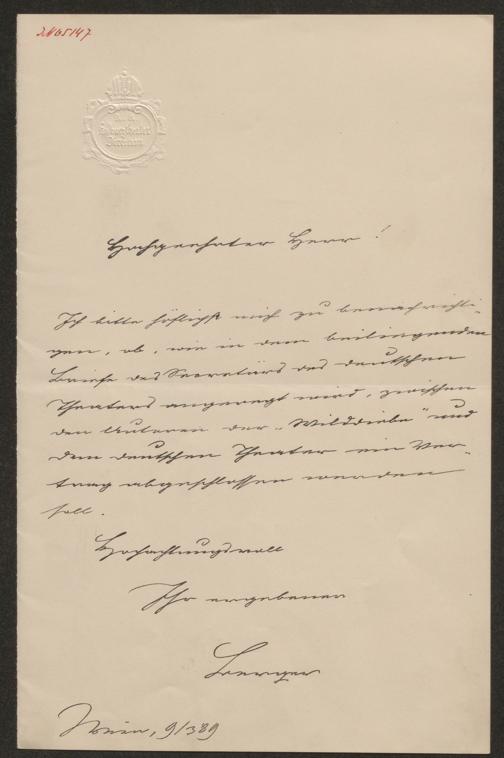 Hochgeehrter Herr!
Ich bitte höflichst mich zu benachrichti-
gen, ob, wie in dem beiliegenden
Briefe des Secretärs des deutschen
Theaters angeregt wird, zwischen
den Autoren der „Wilddiebe“ und
dem deutschen Theater ein Ver-
trag abgeschlossen werden
soll.
Hochachtungsvoll
Ihr ergebener
Berger
Wien, 9/3 89